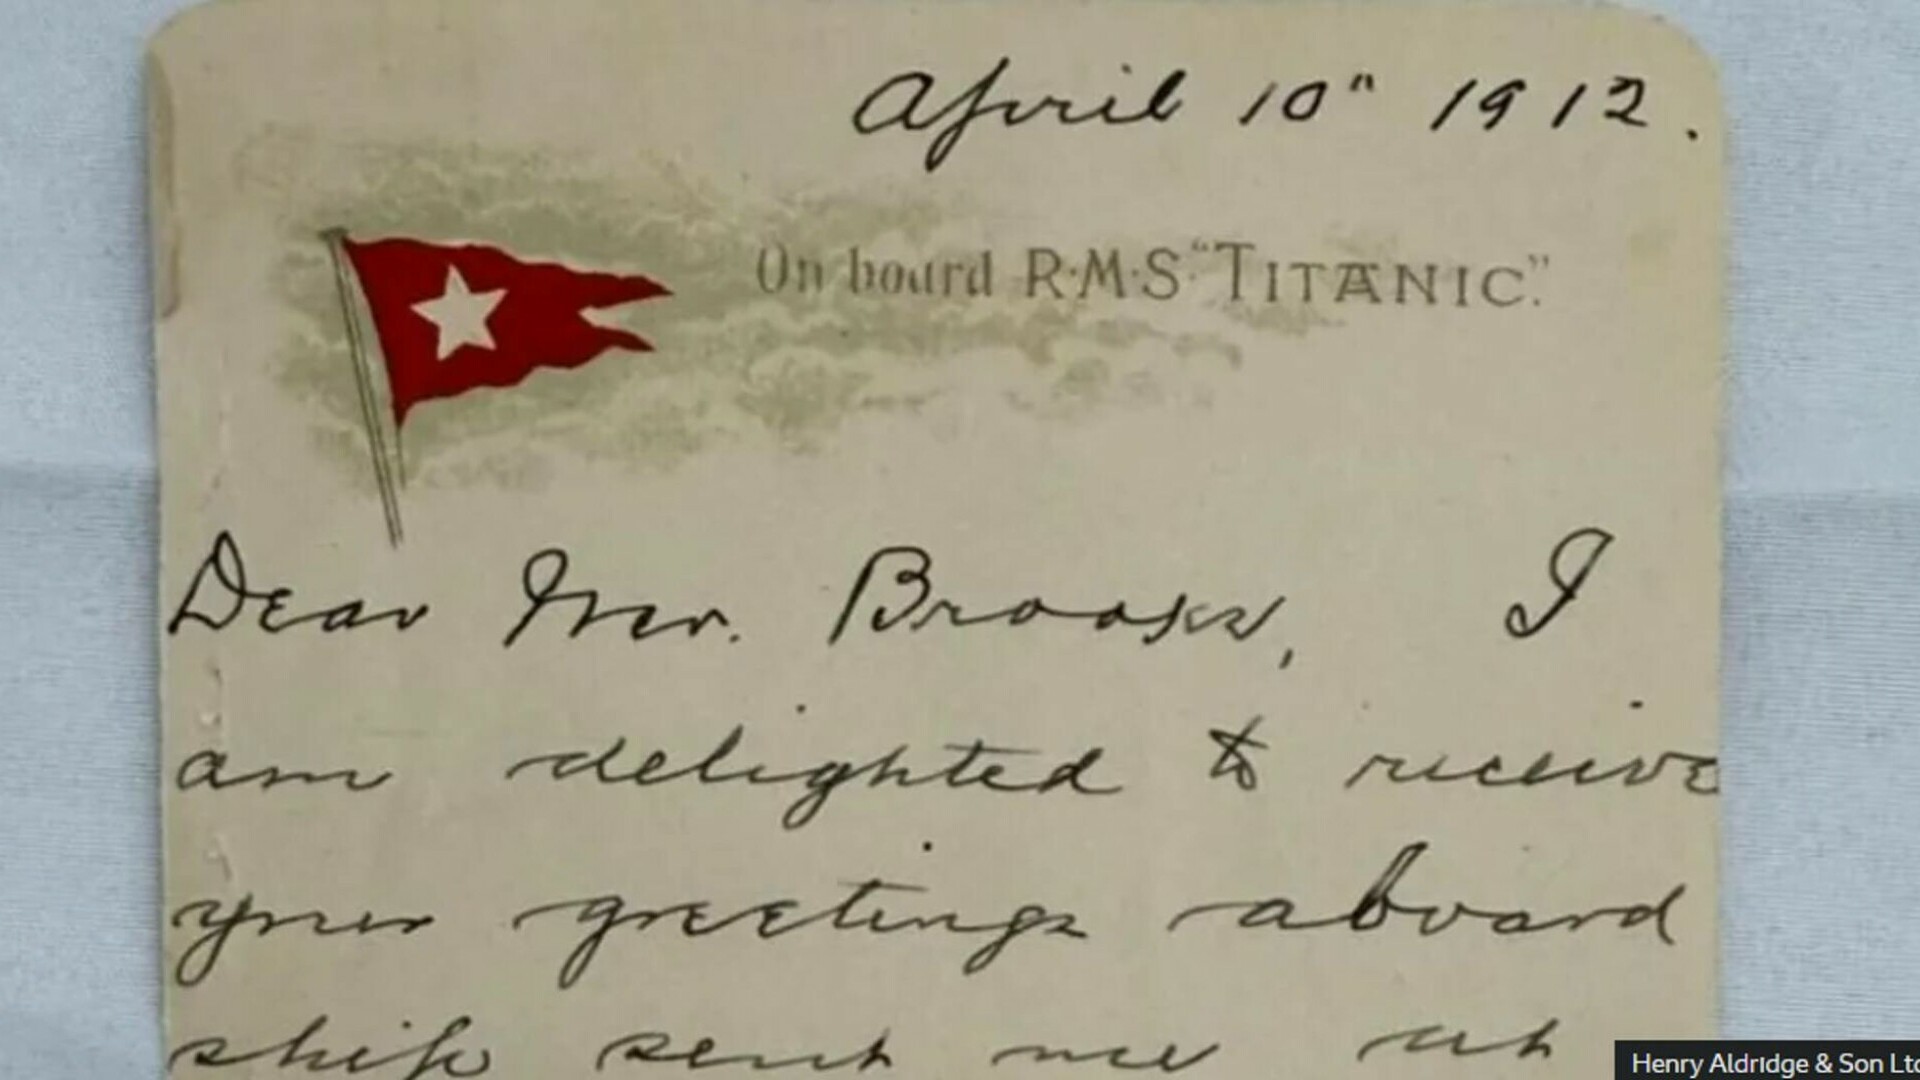 April 10" 1912.
On board R·M·S· "TITANIC."
Dear Mr. Brooks, I
am delighted to receive
your greetings aboard
ship sent me at
Henry Aldridge & Son Ltd